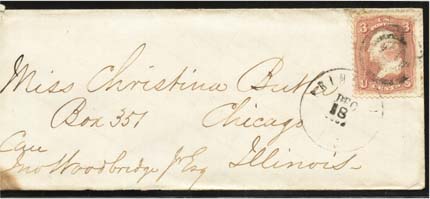 Miss Christina Butler
Box 351 Chicago
Care
Jno Woodbridge Jr Esq Illinois
3 3
DEC
18